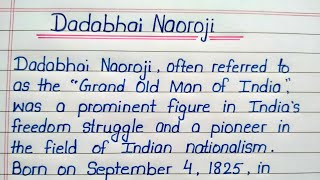 Dadabhai Naoroji
Dadabhai Naoroji, often referred to
as the "Grand Old Man of India",
was a prominent figure in India's
freedom struggle and a pioneer in
the field of Indian nationalism.
Born on September 4, 1825, in